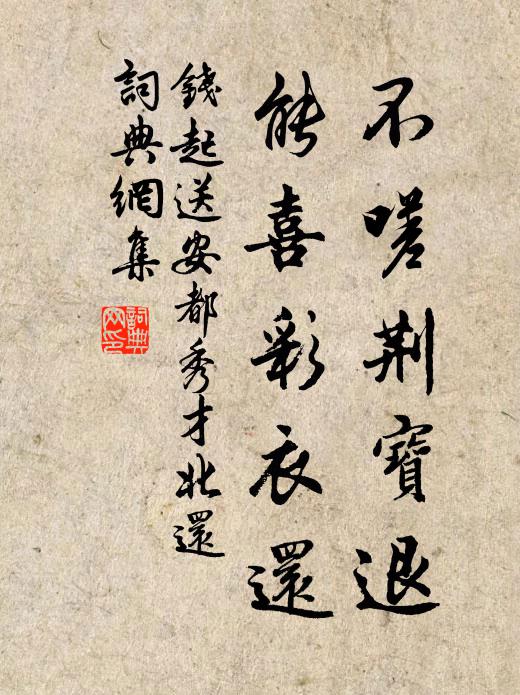 不嗟荆寶退
能喜彩衣還
錢起送安都秀才北還
詞典網集
詞典网印